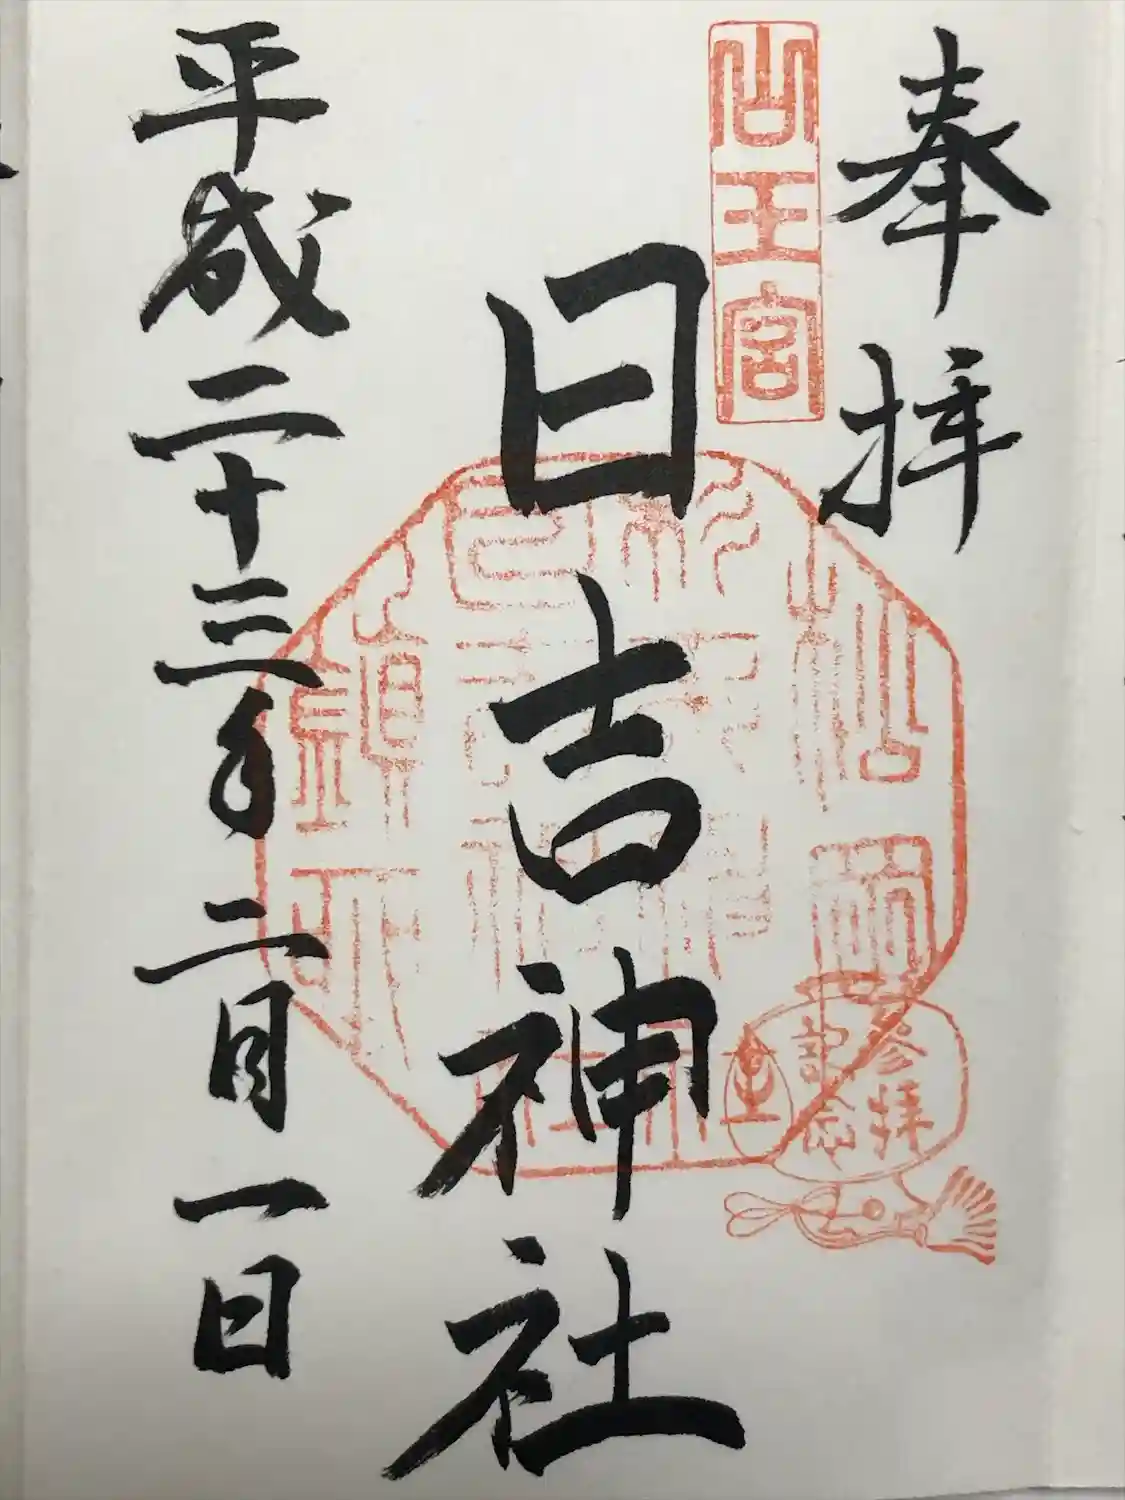 奉拝
山王宮
日吉神社
平成二十三年二月一日
参拝
記念